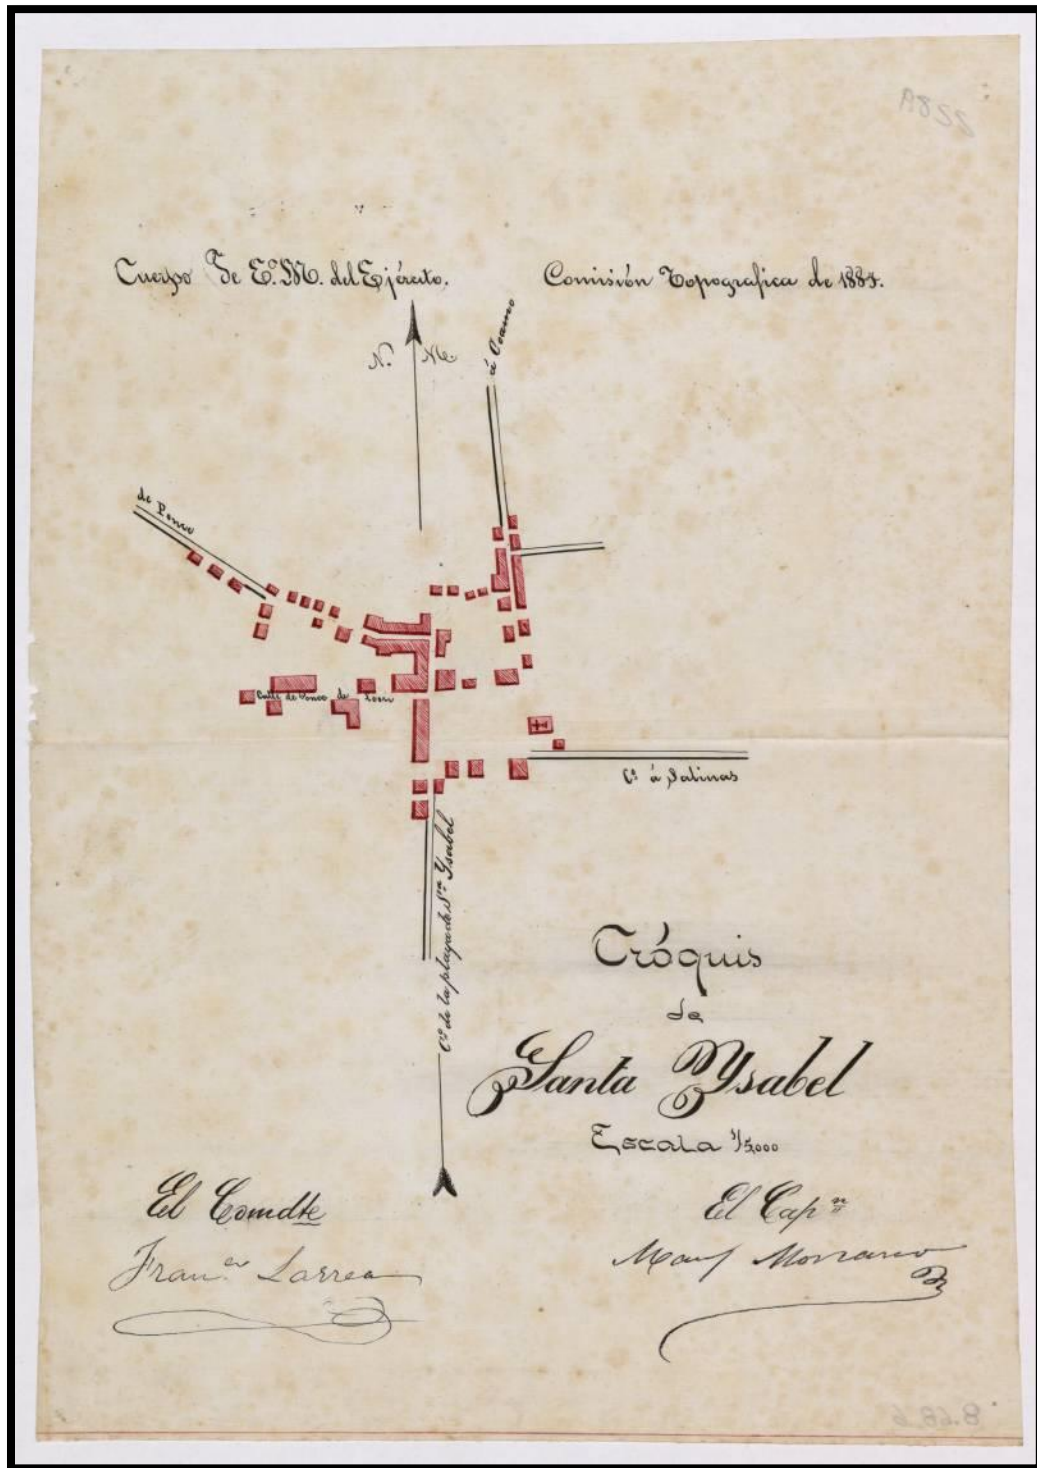 A855
Cuerpo de E.º M. del Ejército.
Comisión Topografica de 1883.
N. M.
á Coamo
de Ponce
Calle de Ponce de Leon
C.º á Salinas
C.º de la playa de S.ta Ysabel
Cróquis
de
Santa Ysabel
Escala 1/5,000
El Comdte
El Cap.n
Fran.co Larrea
Man